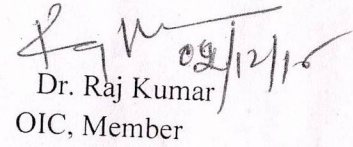 02/12/16
Dr. Raj Kumar
OIC, Member